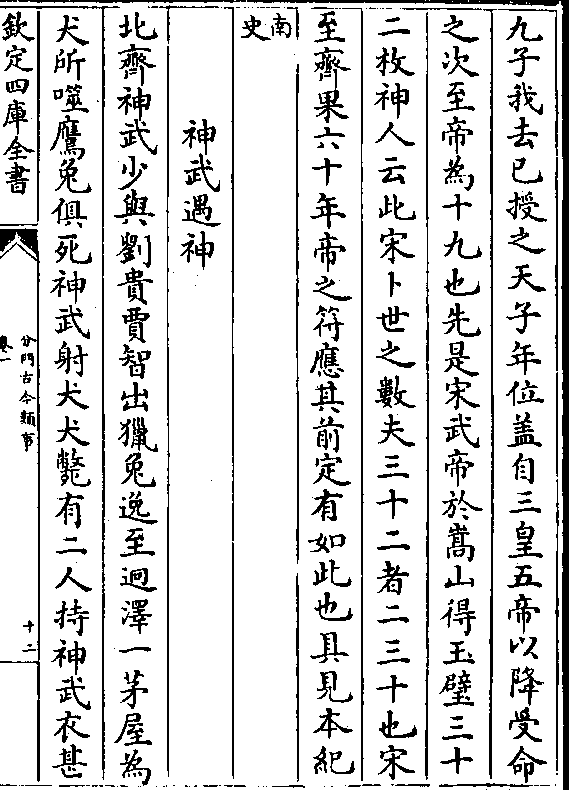 九子我去已授之天子年位盖自三皇五帝以降受命
之次至帝為十九也先是宋武帝於嵩山得玉璧三十
二枚神人云此宋卜世之數夫三十二者二三十也宋
至齊果六十年帝之符應其前定有如此也具見本紀
南史
神武遇神
北齊神武少與劉貴賈智出獵兔逸至迥澤一茅屋為
犬所噬鷹兔俱死神武射犬犬斃有二人持神武衣甚
欽定四庫全書
分門古今類事
卷一
十二